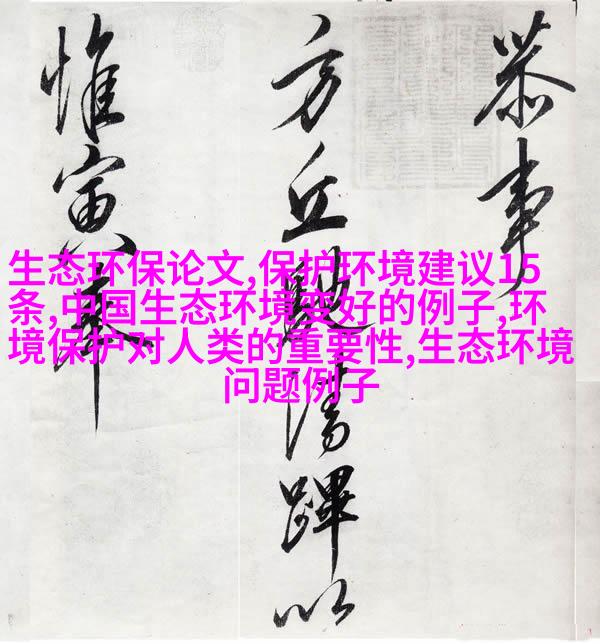 恭事
方丘蹕以
惟寅奉
生态环保论文,保护环境建议15
条,中国生态环境变好的例子,环
境保护对人类的重要性,生态环境
问题例子